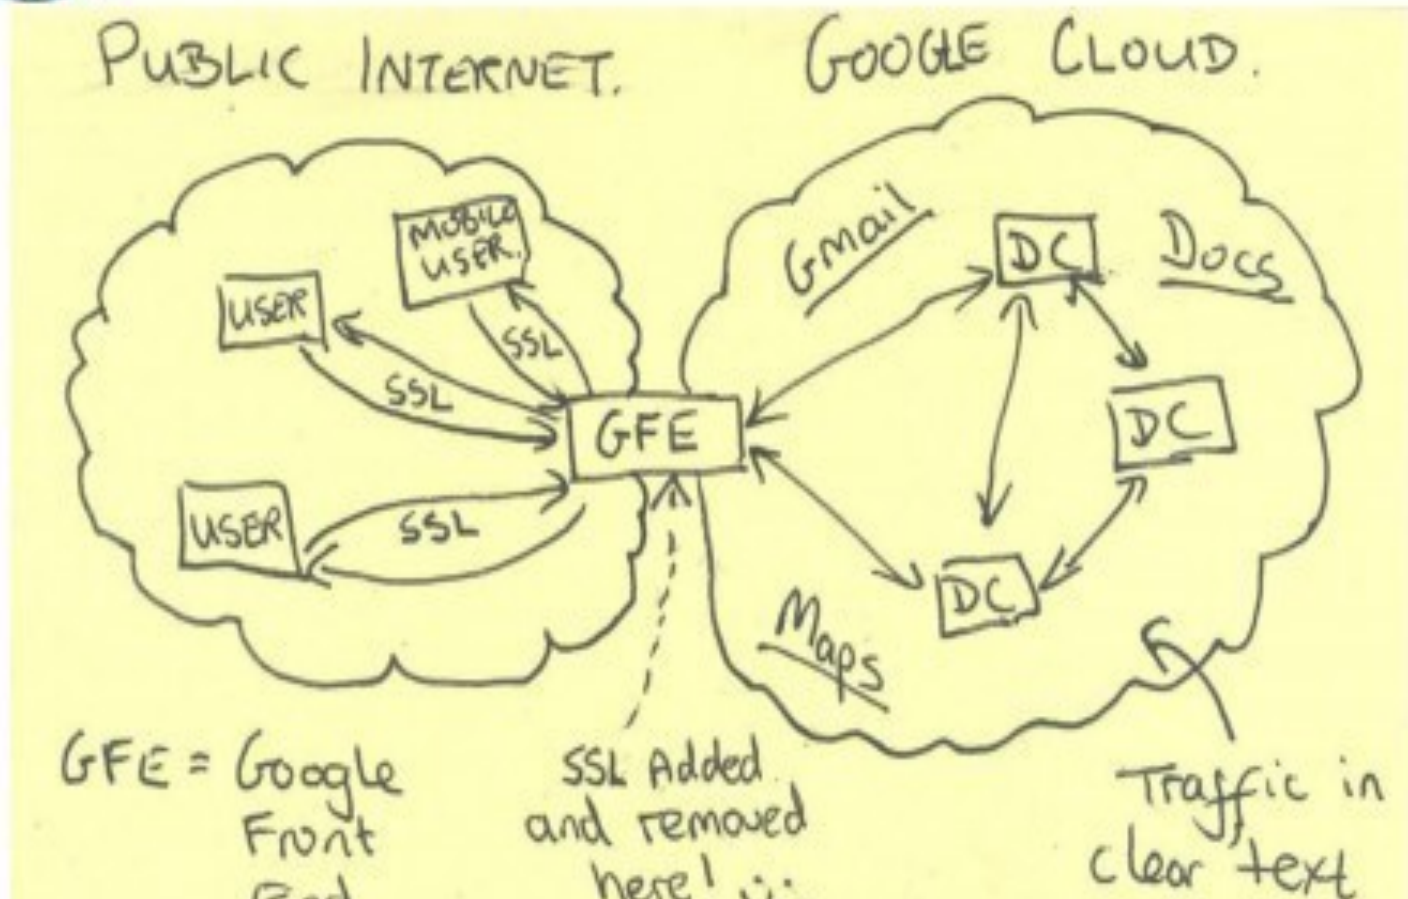 PUBLIC INTERNET.
GOOGLE CLOUD.
MOBILE
USER.
USER
SSL
SSL
USER
SSL
GFE
Gmail
DC
Docs
DC
DC
Maps
GFE = Google
Front
End
SSL Added
and removed
here! :-
Traffic in
clear text